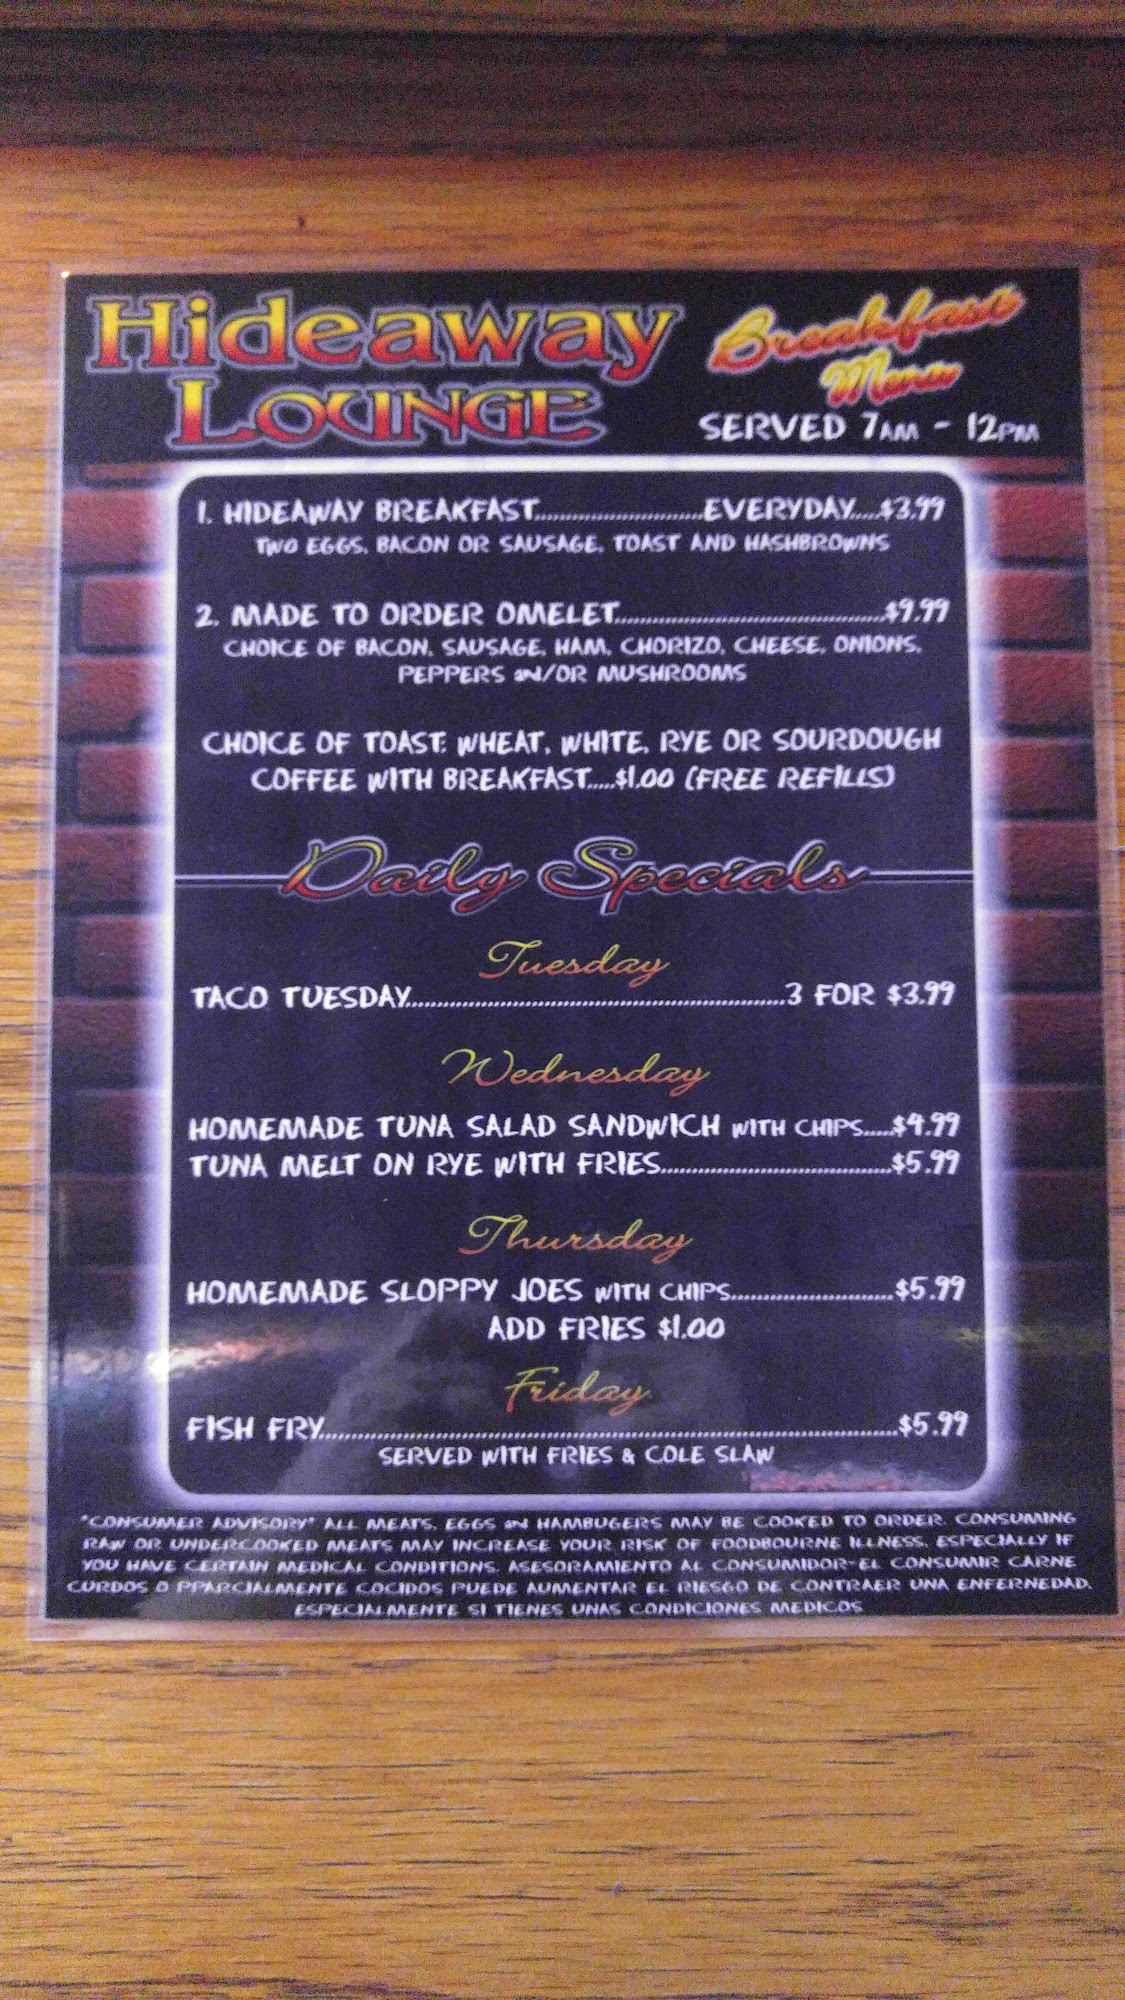 Hideaway
LOUNGE
Breakfast
Menu
SERVED 7AM - 12PM
1. HIDEAWAY BREAKFAST..........................EVERYDAY.....$3.99
TWO EGGS, BACON OR SAUSAGE, TOAST AND HASHBROWNS
2. MADE TO ORDER OMELET..........................................$4.99
CHOICE OF BACON, SAUSAGE, HAM, CHORIZO, CHEESE, ONIONS,
PEPPERS AN/OR MUSHROOMS
CHOICE OF TOAST: WHEAT, WHITE, RYE OR SOURDOUGH
COFFEE WITH BREAKFAST.....$1.00 (FREE REFILLS)
Daily Specials
Tuesday
TACO TUESDAY..........................................................3 FOR $3.99
Wednesday
HOMEMADE TUNA SALAD SANDWICH WITH CHIPS.....$4.99
TUNA MELT ON RYE WITH FRIES....................................$5.99
Thursday
HOMEMADE SLOPPY JOES WITH CHIPS.........................$5.99
ADD FRIES $1.00
Friday
FISH FRY..........................................................................................$5.99
SERVED WITH FRIES & COLE SLAW
*CONSUMER ADVISORY* ALL MEATS, EGGS AND HAMBUGERS MAY BE COOKED TO ORDER. CONSUMING
RAW OR UNDERCOOKED MEATS MAY INCREASE YOUR RISK OF FOODBOURNE ILLNESS, ESPECIALLY IF
YOU HAVE CERTAIN MEDICAL CONDITIONS. ASESORAMIENTO AL CONSUMIDOR-EL CONSUMIR CARNE
CURDOS O PPARCIALMENTE COCIDOS PUEDE AUMENTAR EL RIESGO DE CONTRAER UNA ENFERNEDAD.
ESPECIALMENTE SI TIENES UNAS CONDICIONES MEDICOS